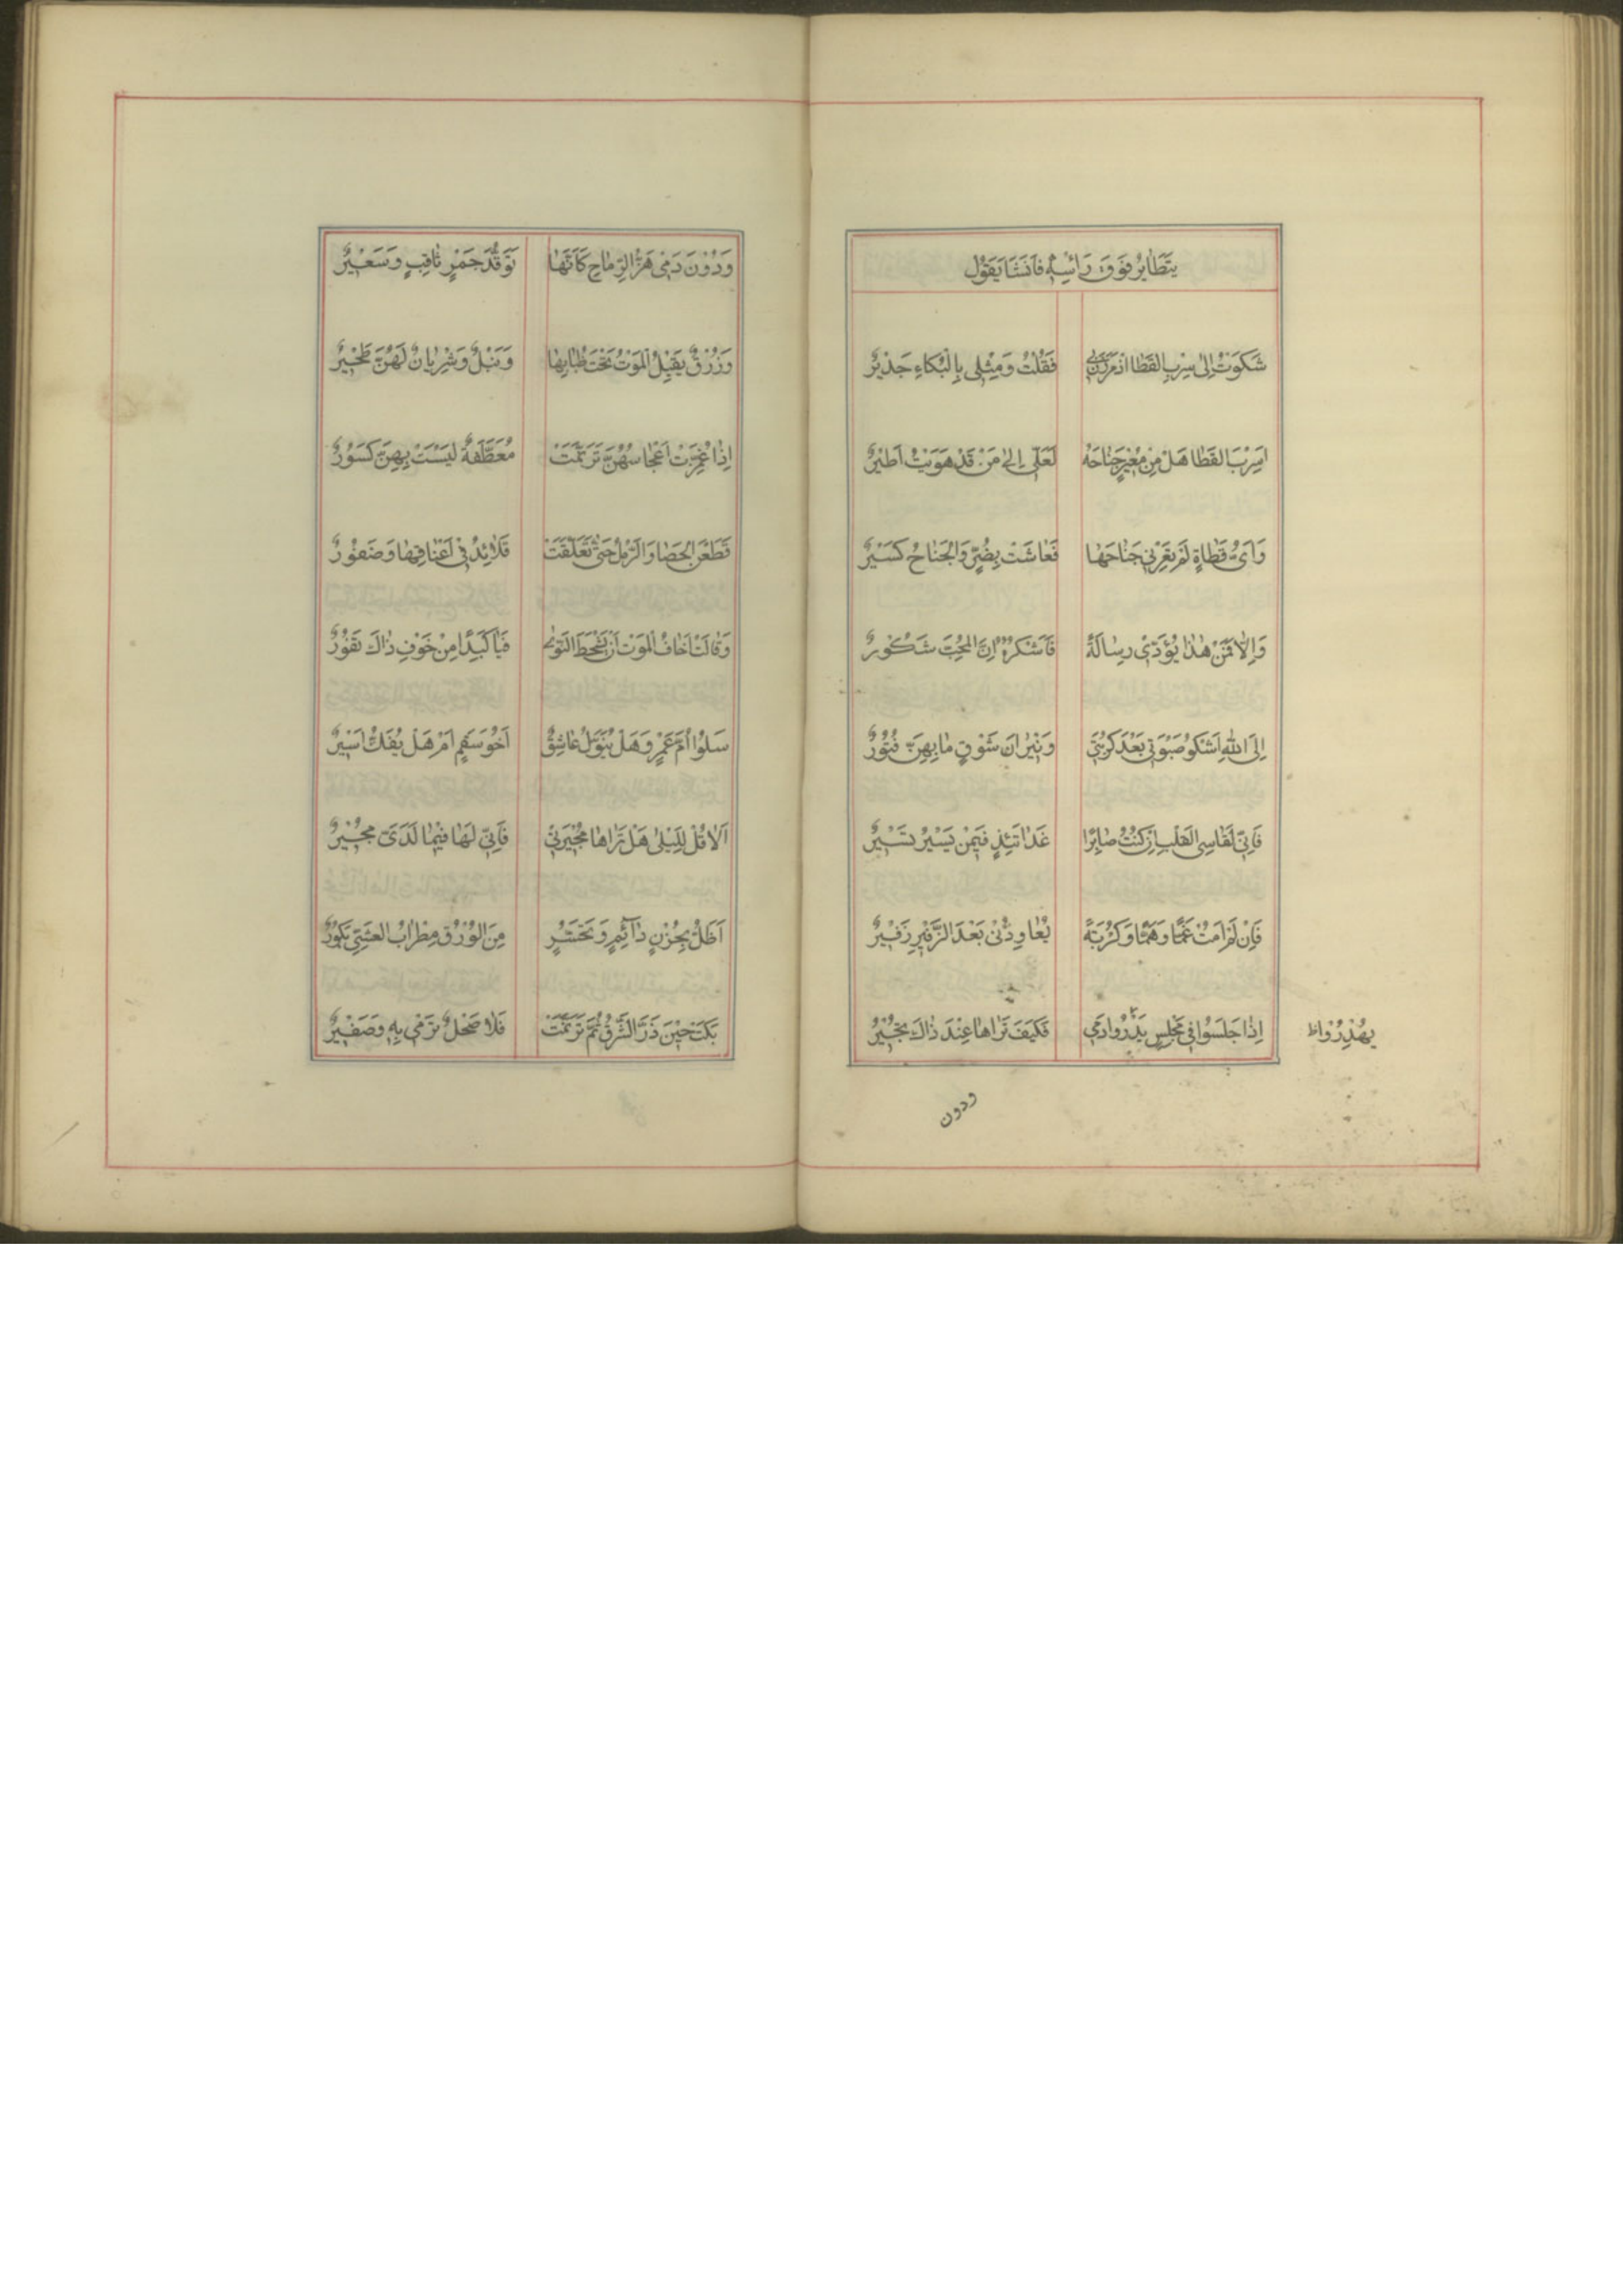 يَتَطَايَرُ فَوَقَ رَأْسِهِ فَاَنْشَا يَقُوْل
شَكَوْتُ اِلٰى سِرْبِ القَطَا اذ مَرَرْنَ بِى فَقُلْتُ وَمِثْلِى بِالْبُكَاءِ جَدِيْرٌ
اَسِرْبَ القَطَا هَلْ مِنْ مُعِيْرٍ جَنَاحَهُ لَعَلِّى اِلىٰ مَنْ قَدْ هَوَيْتُ اَطِيْرُ
وَاَىُّ قَطَاةٍ لَمْ يَعِرْنِى جَنَاحَهَا فَعَاشَتْ بِضُرٍّ وَالجَنَاحُ كَسِيْرٌ
وَاِلّا فَمَنْ هٰذَا يُؤَدِّى رِسَالَةً فَاَشْكُرَهُ اِنَّ المُحِبَّ شَكُوْرٌ
اِلَى اللّٰهِ اَشْكُو صَبْوَتِى بَعْدَ كُرْبَتِى وَنِيْرَانَ شَوْقٍ مَا بِهِنَّ فُتُوْرٌ
فَاِنِّى لَقَاسِى القَلْبِ اِنْ كُنْتُ صَابِرًا غَدَاتَئِذٍ فِيْمَنْ يَسِيْرُ تَسِيْرُ
فَاِنْ لَمْ اَمُتْ غَمًّا وَهَمًّا وَكُرْبَةً يُعَاوِدُنِى بَعْدَ الزَّفِيْرِ زَفِيْرٌ
اِذَا جَلَسُوْا فِى مَجْلِسٍ يَنْذُرُوا دَمِى فَكَيْفَ تَرَاهَا عِنْدَ ذَاكَ تُجِيْرُ
يَهْذِرُوْا ظ
ودون
وَدُوْنَ دَمِى هَزُّ الرِّمَاحِ كَاَنَّهَا تَوَقُّدُ جَمْرٍ ثَاقِبٍ وَسَعِيْرٌ
وَزُرْقٌ يَقِيْلُ المَوْتُ تَحْتَ ظُبَاتِهَا وَنَبْلٌ وَشِرْيَانٌ لَهُنَّ طَحِيْرٌ
اِذَا غُمِزَتْ اَعْجَاسُهُنَّ تَرَنَّمَتْ مُعَطَّفَةٌ لَيْسَتْ بِهِنَّ كُسُوْرٌ
قَطَعْنَ الحَصَا وَالرَّمْلَ حَتّٰى تَعَلَّقَتْ قَلَائِدُ فِى اَعْنَاقِهَا وَضُفُوْرٌ
وَقَالَتْ اَخَافُ المَوْتَ اَنْ يَشْحَطَ النَّوَى فَيَا كَبِدًا مِنْ خَوْفِ ذَاكَ تَفُوْرُ
سَلُوْا اُمَّ عَمْرٍ وَهَلْ يُنَوَّلُ عَاشِقٌ اَخُو سَقَمٍ اَمْ هَلْ يُفَكُّ اَسِيْرٌ
اَلا قُلْ لِلَيْلٰى هَلْ تَرَاهَا مُجِيْرَتِى فَاِنِّى لَهَا فِيْمَا لَدَىَّ مُجِيْرٌ
اَظَلُّ بِحُزْنٍ دَآئِمٍ وَتَحَسُّرٍ مِنَ الوُرْقِ مِطْرَابُ العَشِىِّ بَكُوْرٌ
بَكَتْ حِيْنَ ذَرَّ الشَّرْقُ ثُمَّ تَرَنَّمَتْ فَلا صَحْلٌ تَرْمِى بِهِ وَصَفِيْرٌ